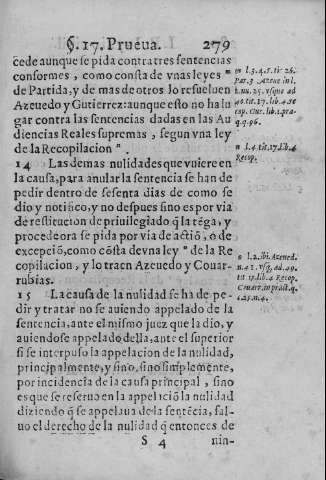 §. 17. Prueua. 279
cede aunque se pida contra tres sentencias
conformes, como consta de vnas leyes m
de Partida, y de mas de otros lo resueluen
Azeuedo y Gutierrez: aunque esto no ha lu
gar contra las sentencias dadas en las Au
diencias Reales supremas, segun vna ley
de la Recopilacion n.
14 Las demas nulidades que vuiere en
la causa, para anular la sentencia se han de
pedir dentro de sesenta dias de como se
dio y notifico, y no despues sino es por via
de restitucion de priuilegiado q̃ la tẽga, y
procede ora se pida por via de actiõ, o de
excepciõ, como cõsta de vna ley o de la Re
copilacion, y lo traen Azeuedo y Couar-
rubias.
15 La causa de la nulidad se ha de pe-
dir y tratar no se auiendo appelado de la
sentencia, ante el mismo juez que la dio, y
auiendose appelado della, ante el superior
si se interpuso la appelacion de la nulidad,
principalmente, y sino, sino simplemente,
por incidencia de la causa principal, sino
es que se reseruo en la appelaciõ la nulidad
diziendo q̃ se appelaua de la sentẽcia, sal-
uo el derecho de la nulidad q̃ entonces de
S 4 nin-
m l. 3. 4. 5. tit. 26.
Par. 3. Azeue in l.
1. nu. 25. vsque ad
40. tit. 17. lib. 4. Re
cop. Gut. lib. 1. pra-
q. q. 96.
n l. 4. tit. 17. lib. 4
Recop.
o l. 2. ibi. Azeued.
n. 42. vsq; ad. 49.
tit. 17. lib. 4. Recop.
Couarr. in pract. q.
c. 25. n. 4.